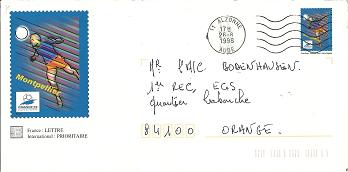 11 ALZONNE
17H
26-8
1998
AUDE
Montpellier
FRANCE 98
France : LETTRE
International : PRIORITAIRE
Mr BODENHAUSEN.
1er REC, EGS
quartier Labouche
84100 ORANGE.